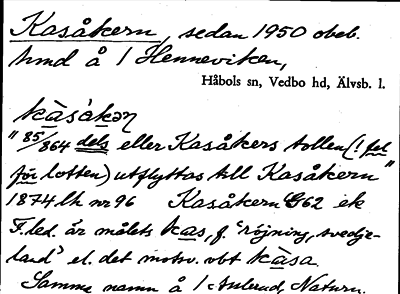 Kasåkern, sedan 1950 obeb.
hmd å 1 Henneviken,
Håbols sn, Vedbo hd, Älvsb. l.
kàsákəɲ
"85/864 dels eller Kasåkers tollen (! fel
för lotten) utflyttas till Kasåkern"
1874 lh nr 96 Kasåkern G62 ek
F.led. är målets kas, f. "röjning, svedje-
land" el. det motsv. vbt kàsa.
Samma namn å 1 Naturn.